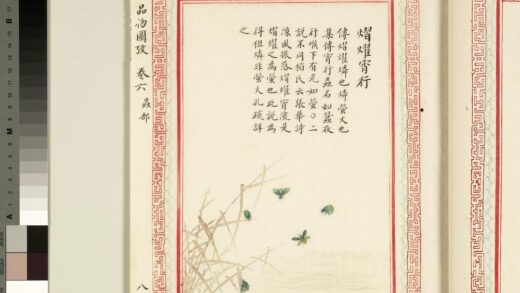 熠燿宵行
傳熠燿燐也燐螢火也
集傳宵行蟲名如蠶夜
行喉下有光如螢〇二
說不同稻氏云張華詩
涼風振落熠燿宵流是
熠燿之為螢也此說為
得但燐非螢火孔疏詳
之
品物圖攷 卷六 蟲部 八